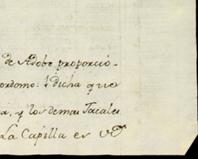 de Adobe proporcio-
ordomo: dicha que
a, y los demas Jacales
La Capilla es vª